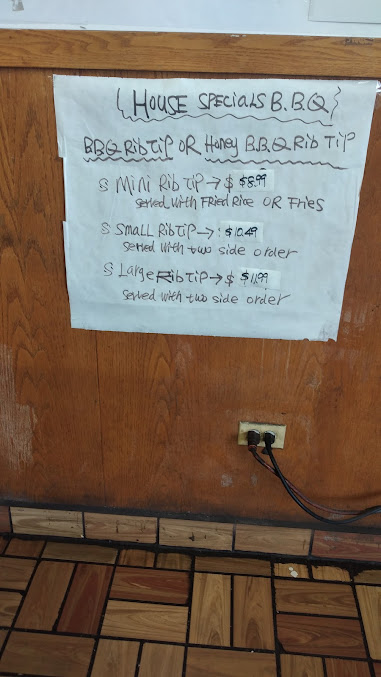 {HOUSE SPECIALS B.B.Q}
B.B.Q Rib Tip OR Honey B.B.Q Rib Tip
§ Mini Rib Tip → $ $8.99
served with Fried Rice OR Fries
§ Small Rib Tip → $10.49
served with two side order
§ Large Rib Tip → $ $11.99
served with two side order